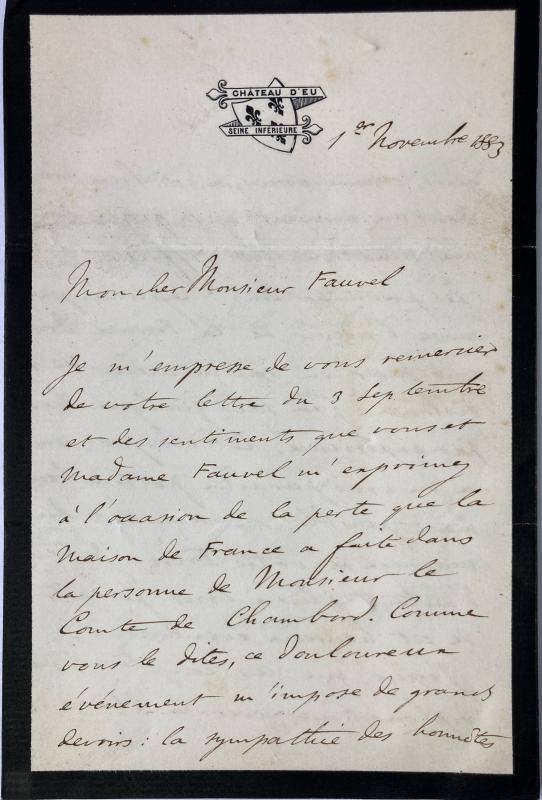 CHÂTEAU D'EU
SEINE INFÉRIEURE
1er Novembre 1883
Mon cher Monsieur Fauvel
Je m'empresse de vous remercier
de votre lettre du 3 Septembre
et des sentiments que vous et
Madame Fauvel m'exprimez
à l'occasion de la perte que la
Maison de France a faite dans
la personne de Monsieur le
Comte de Chambord. Comme
vous le dites, ce douloureux
événement m'impose de grands
devoirs : la sympathie des honnêtes